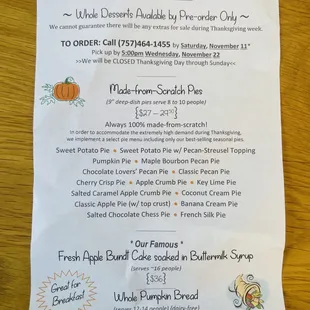 ~ Whole Desserts Available by Pre-order Only ~
We cannot guarantee there will be any extras for sale during Thanksgiving week.
TO ORDER: Call (757)464-1455 by Saturday, November 11*
Pick up by 5:00pm Wednesday, November 22
>>We will be CLOSED Thanksgiving Day through Sunday<<
Made-from-Scratch Pies
(9" deep-dish pies serve 8 to 10 people)
{$27 – 29⁵⁰}
Always 100% made-from-scratch!
In order to accommodate the extremely high demand during Thanksgiving,
we implement a select pie menu including only our best-selling seasonal pies.
Sweet Potato Pie • Sweet Potato Pie w/ Pecan-Streusel Topping
Pumpkin Pie • Maple Bourbon Pecan Pie
Chocolate Lovers' Pecan Pie • Classic Pecan Pie
Cherry Crisp Pie • Apple Crumb Pie • Key Lime Pie
Salted Caramel Apple Crumb Pie • Coconut Cream Pie
Classic Apple Pie (w/ top crust) • Banana Cream Pie
Salted Chocolate Chess Pie • French Silk Pie
* Our Famous *
Fresh Apple Bundt Cake soaked in Buttermilk Syrup
(serves ~16 people)
{$36}
Great for
Breakfast!
Whole Pumpkin Bread
(serves 12-14 people) (dairy-free)